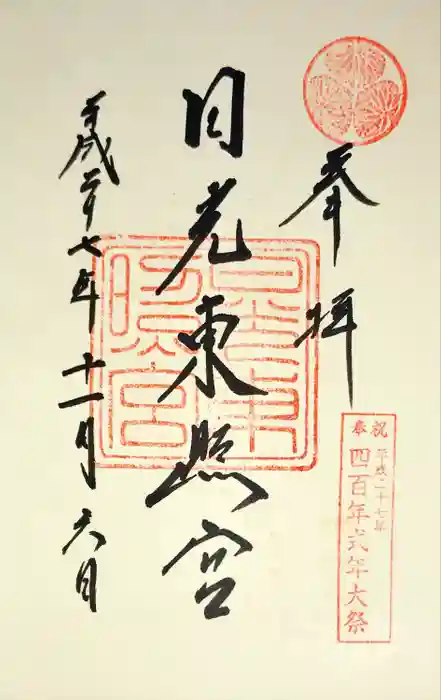 奉拝
奉祝
平成二十七年
四百年式年大祭
日光東照宮
日光東照宮
平成二十七年十一月六日